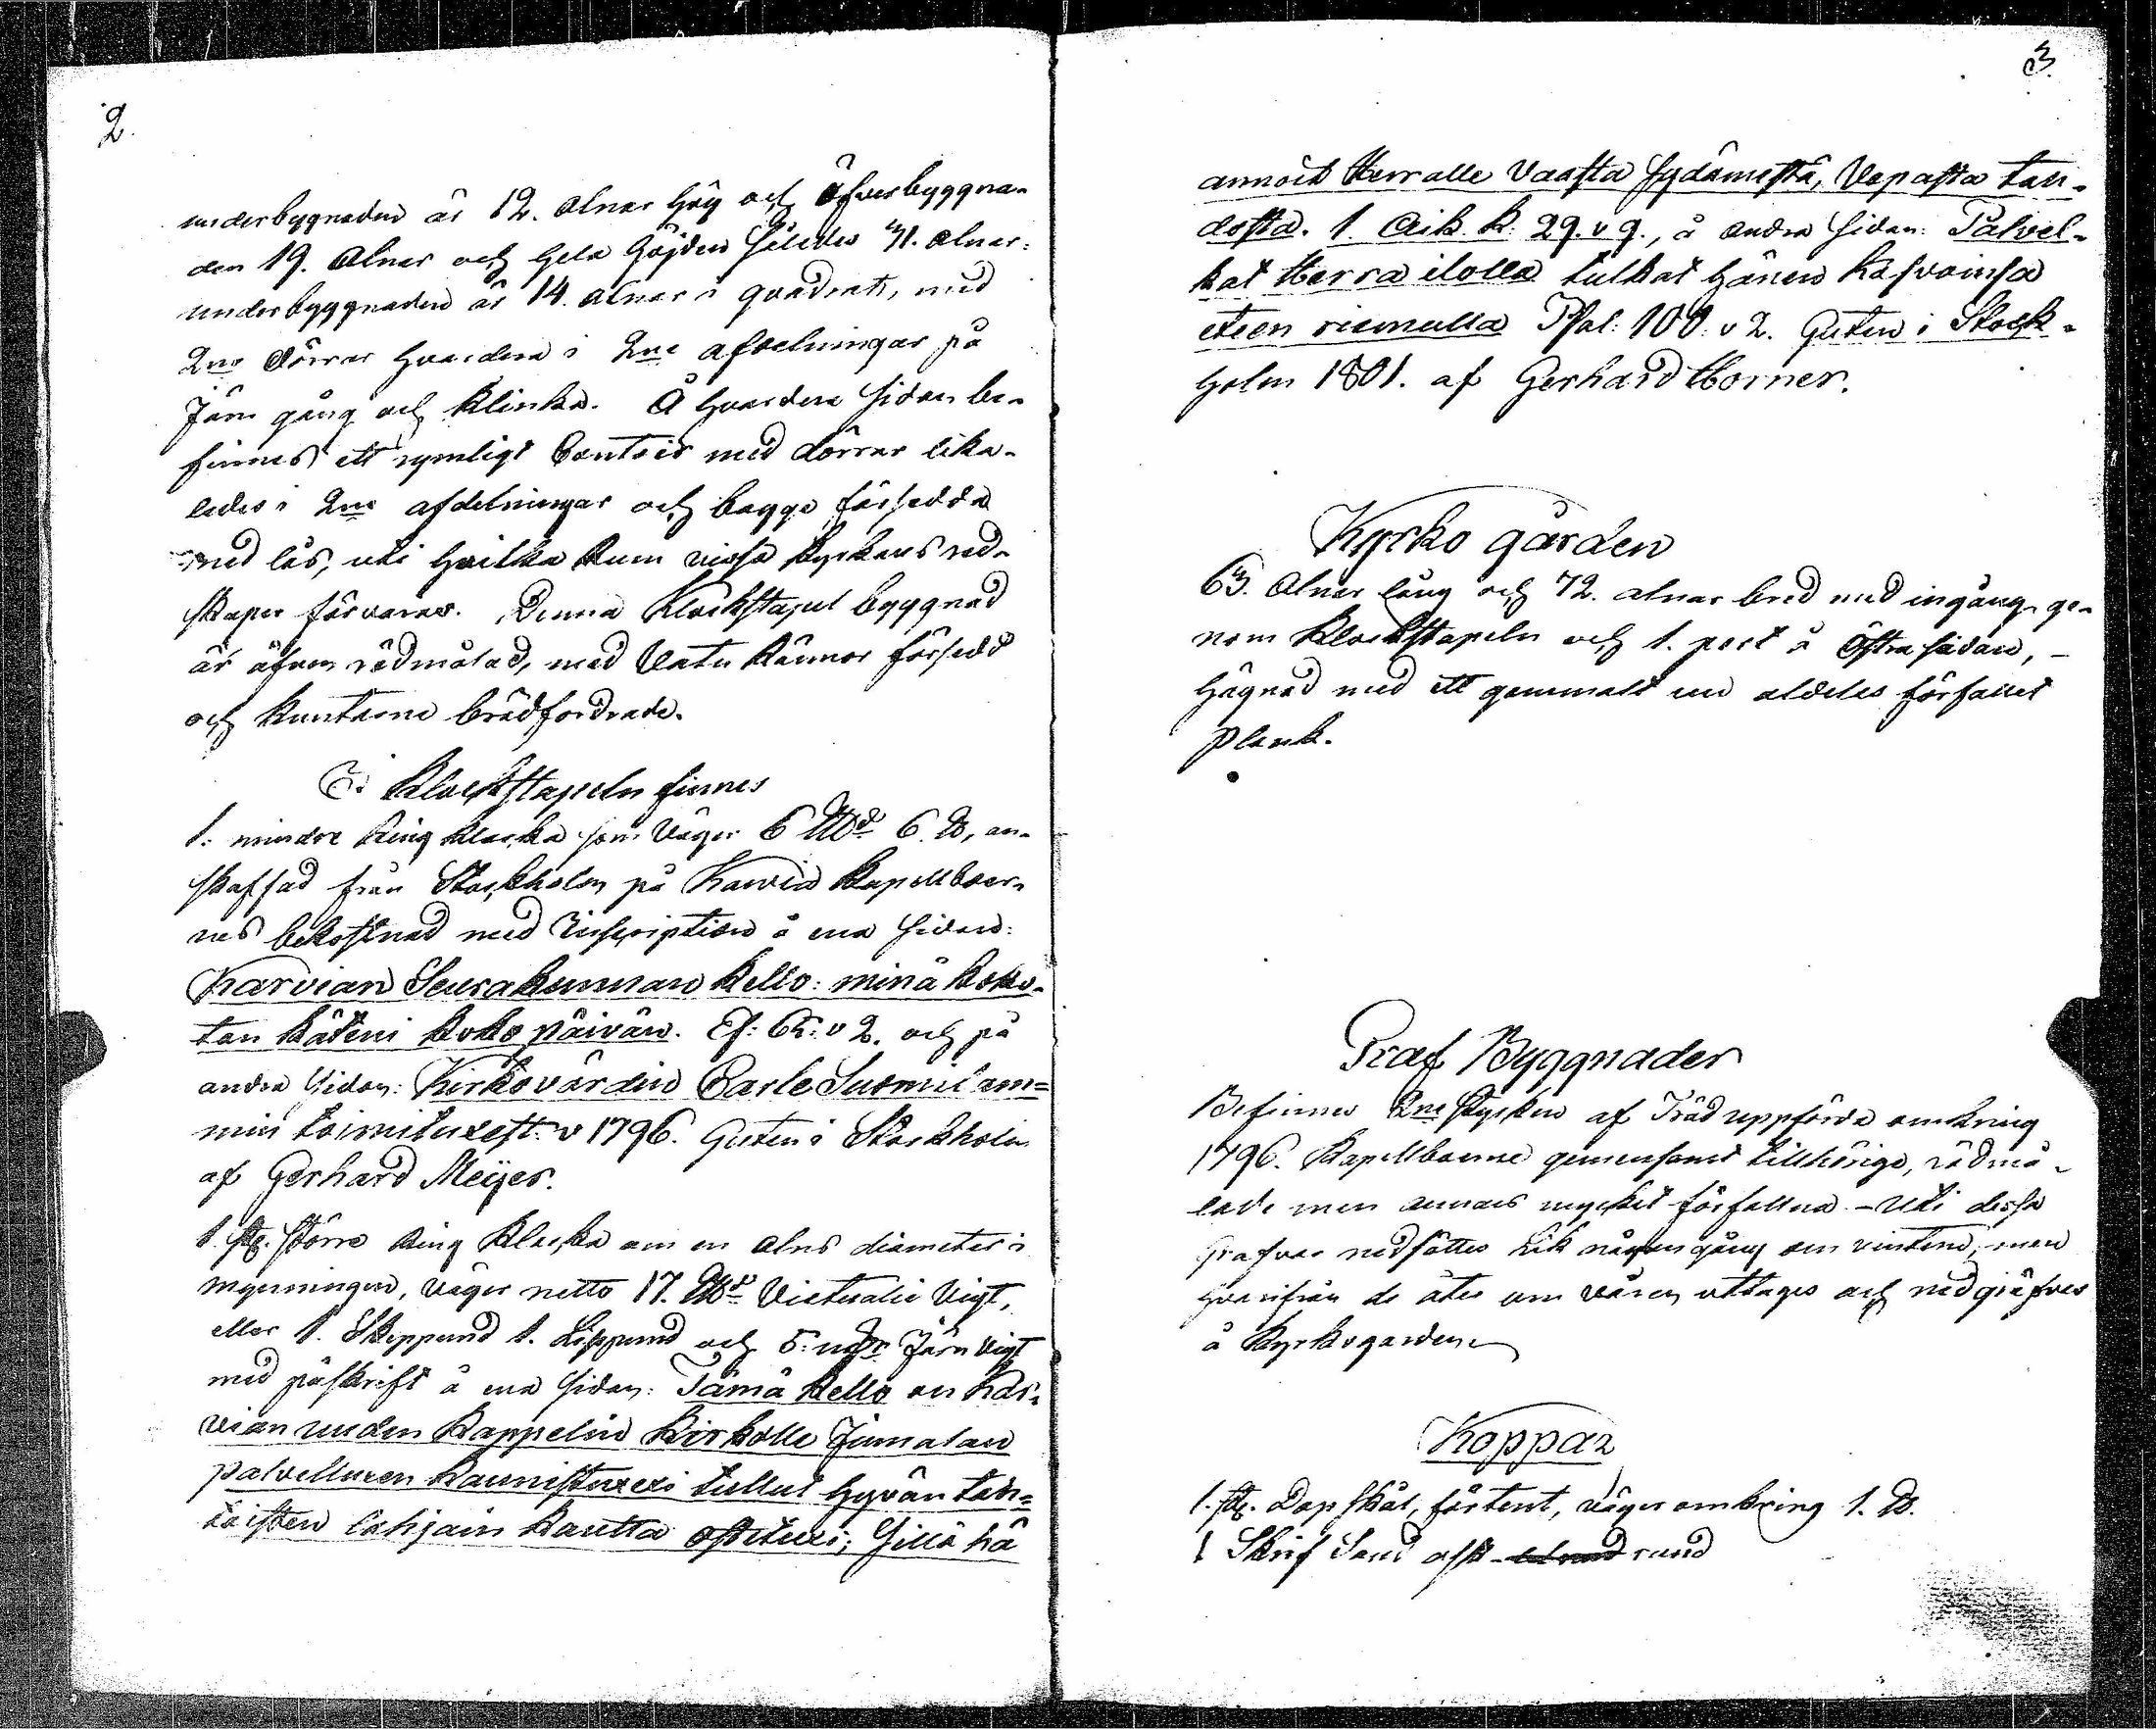 2.
underbygnaden är 12. alnar hög och öfverbyggna-
den 19. Alnar och hela höjden således 31. alnar:
underbyggnaden är 14. alnar i qvadrat, med
2ne dörrar hvardera i 2ne afdelningar på
Järn gång och Klinka. Å hvardera sidan be-
finnes ett rymligt Contoir med dörrar lika-
ledes i 2ne afdelningar och bägge försedda
med lås, uti hvilka Rum vissa Kyrkans red-
skaper förvaras. Denna Klockstapul byggnad
är äfven rödmålad, med Vatu Rännor försedd
och Knutarne brädfordrade.
I Klockstapeln finnes
1. mindre Ring Klocka som väger 6 L℔d 6 ℔, an-
skaffad från Stockholm på Karvia Kapellboer-
nes bekostnad med Inscription å ena sidan:
Karvian Seurakunnan Kello: minä koko-
tan käteni koko päivän. Es: 65: v 2. och på
andra sidan: Kirkovärdin Carle Suomilam-
min toimituxest: v 1796. Guten i Stockholm
af Gerhard Meijer.
1. st. större Ring Klocka om en alns diameter i
mynningen, väger netto 17. L℔d Victualie Vigt,
eller 1. Skeppund 1. Lispund och 5. Järn Vigt
med påskrift å ena sidan: Tämä Kello on Kar-
vian uuden Kappelin Kirkolle Jumalan
palvelluxen kaunistuxexi tullut hyvän tah-
toisten lahjain kautta ostetuxi; Sillä he
3.
annoit Herralle vaasta sydämestä, Vapasta tah-
dosta. 1. Aik. K: 29. v 9., å andra sidan: Palvel-
kat Herra ilolla tulkat hänen Kasvoinsa
eteen riemulla Psal: 100: v 2. Guten i Stock-
holm 1801. af Gerhard Horner.
Kyrko gården
63. Alnar lång och 72. alnar bred med ingång ge-
nom Klockstapeln och 1. port å Östra sidan, -
hägnad med ett gammalt en aldeles förfallet
plank.
Graf Byggnader
Befinnes 2ne stycken af Träd uppförde omkring
1796. Kapellboerne gemensamt tillhörige, rödmå-
lade men annars mycket förfallna. - Uti dessa
Grafvar nedsättes Lik någon gång om vintern, men
hvarifrån de åter om våren uttages och nedgräfves
å Kyrkogården
Koppar
1. st. Dop skål, förtent, väger omkring 1. ℔.
1 Skrif Sand ask rund